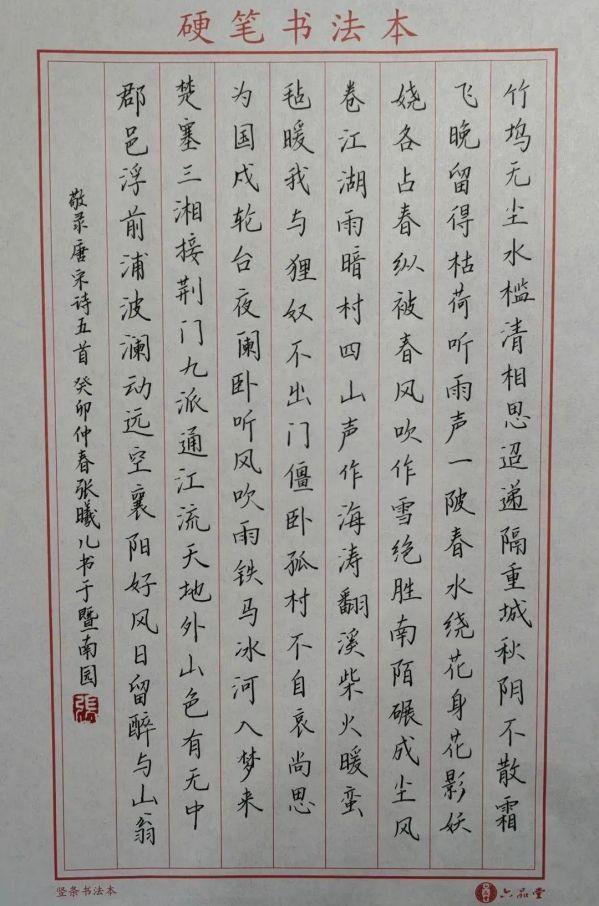 硬笔书法本
竹坞无尘水槛清相思迢递隔重城秋阴不散霜
飞晚留得枯荷听雨声一陂春水绕花身花影妖
娆各占春纵被春风吹作雪绝胜南陌碾成尘风
卷江湖雨暗村四山声作海涛翻溪柴火暖蛮
毡暖我与狸奴不出门僵卧孤村不自哀尚思
为国戍轮台夜阑卧听风吹雨铁马冰河入梦来
楚塞三湘接荆门九派通江流天地外山色有无中
郡邑浮前浦波澜动远空襄阳好风日留醉与山翁
敬录唐宋诗五首癸卯仲春张曦儿书于暨南园
張
竖条书法本
六品堂